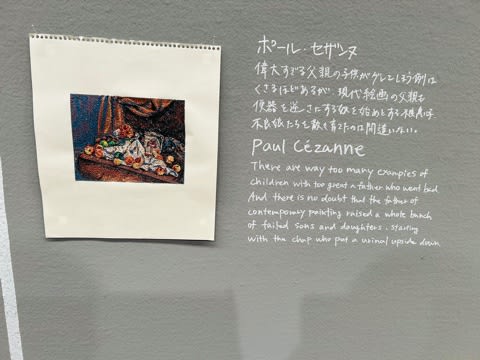 ポール・セザンヌ
偉大すぎる父親の子供がグレてしまう例は
くさるほどあるが、現代絵画の父親も
便器を逆さにする奴を始めとする
不良娘たちを育てたのは間違いない。
Paul Cézanne
There are way too many examples of
children with too great a father who went bad
And there is no doubt that the father of
contemporary painting raised a whole bunch
of failed sons and daughters. starting
with the chap who put a urinal upside down